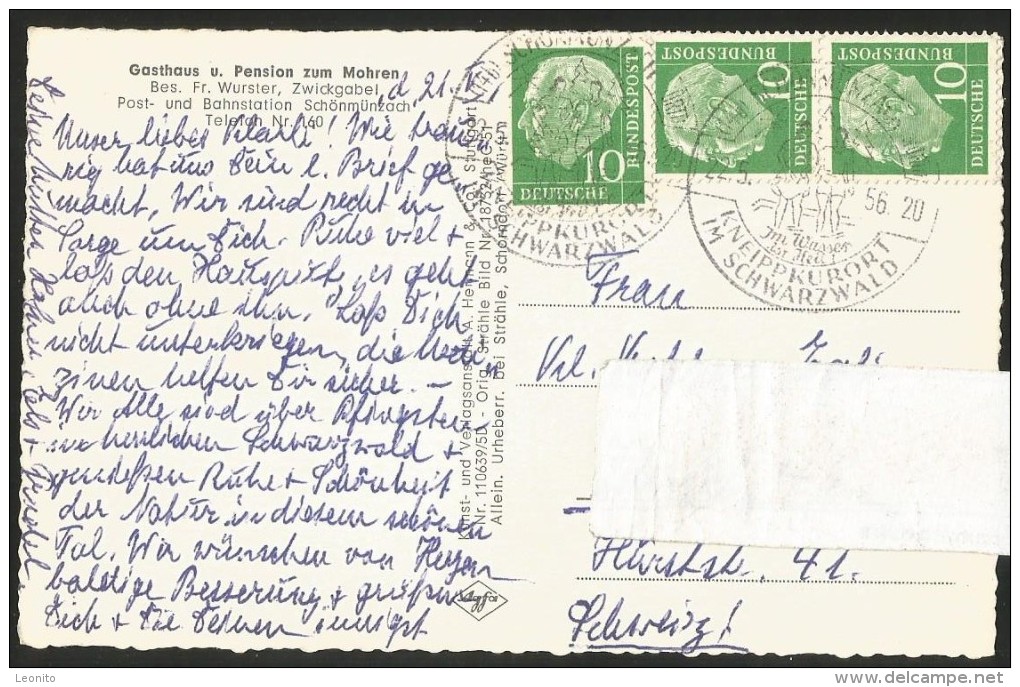 Gasthaus u. Pension zum Mohren
Bes. Fr. Wurster, Zwickgabel
Post- und Bahnstation Schönmünzach
Telefon Nr. 160
d. 21. V.
Unser liebes Klärli! Wie trau-
rig hat uns Dein l. Brief ge-
macht, Wir sind recht in
Sorge um Dich. Ruhe viel +
laß den Hausputz, es geht
auch ohne ihn. Laß Dich
nicht unterkriegen, die Medi-
zinen helfen Dir sicher. –
Wir Alle sind über Pfingsten
im herrlichen Schwarzwald +
genießen Ruhe + Schönheit
der Natur in diesem schönen
Tal. Wir wünschen von Herzen
baldige Besserung + grüßen
Dich + die Deinen innigst
Kunst- und Verlagsanstalt A. Hermann & Co., Stuttgart
Nr. 110639/5D - Orig. Strähle Bild Nr. 18752 Aufnahme 1951
Allein. Urheberr. bei Strähle, Schorndorf/Württ.
Agfa
DEUTSCHE
BUNDESPOST
10
DEUTSCHE
BUNDESPOST
10
DEUTSCHE
BUNDESPOST
10
KNEIPPKURORT
IM SCHWARZWALD
22.5.56. 20
Im Wasser
ist Heil!
KNEIPPKURORT
IM SCHWARZWALD
Frau
41.
Schweiz!